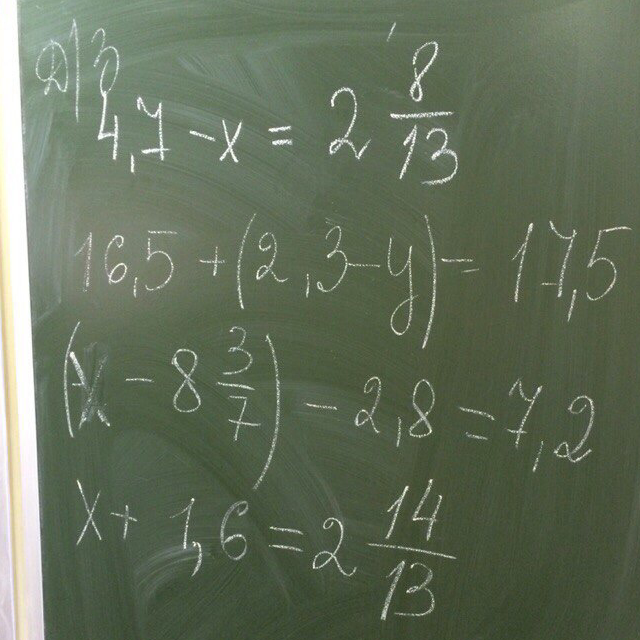 Д/З
4,7 - x = 2 8/13
16,5 + (2,3 - y) = 17,5
(x - 8 3/7) - 2,8 = 7,2
x + 1,6 = 2 14/13